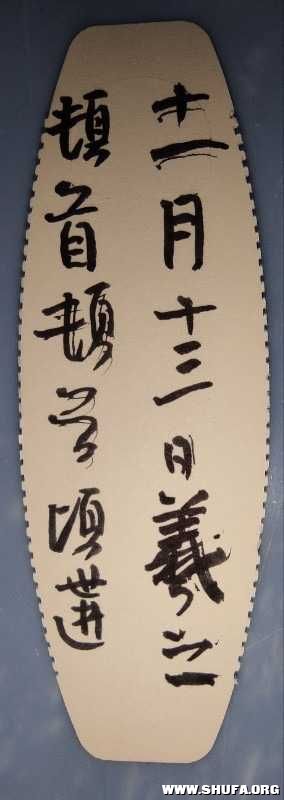 十一月十三日羲之
頓首頓首頃遘
WWW.SHUFA.ORG